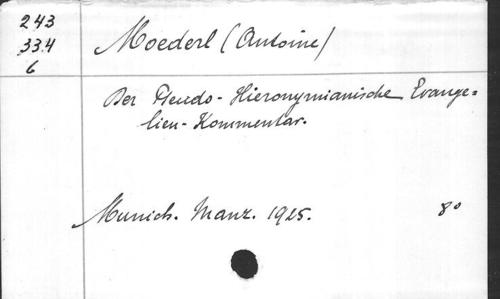 243
334
6
Moederl (Antoine)
Der Pseudo-Hieronymianische Evange=
lien-Kommentar.
Munich. Manz. 1925. 8°